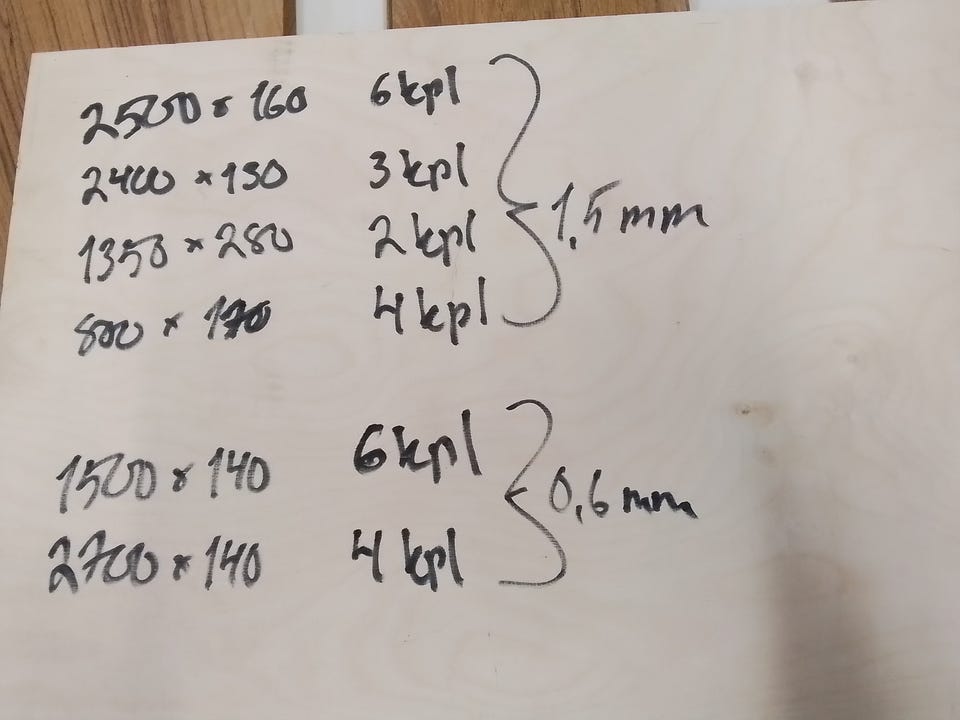 2500 x 160 6 kpl
2400 x 130 3 kpl
1350 x 280 2 kpl
800 x 170 4 kpl
1,5 mm
1500 x 140 6 kpl
2700 x 140 4 kpl
0,6 mm